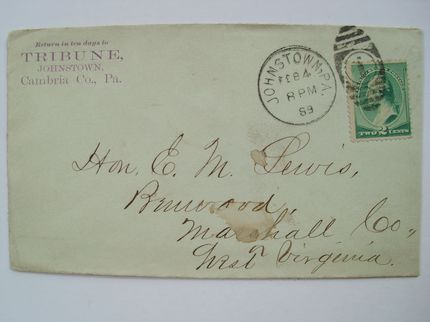 Return in ten days to
TRIBUNE,
JOHNSTOWN,
Cambria Co., Pa.
JOHNSTOWN, PA.
FEB 4
8 PM
89
TWO 2 CENTS
Hon. E. M. Lewis,
Benwood,
Marshall Co.,
West Virginia.